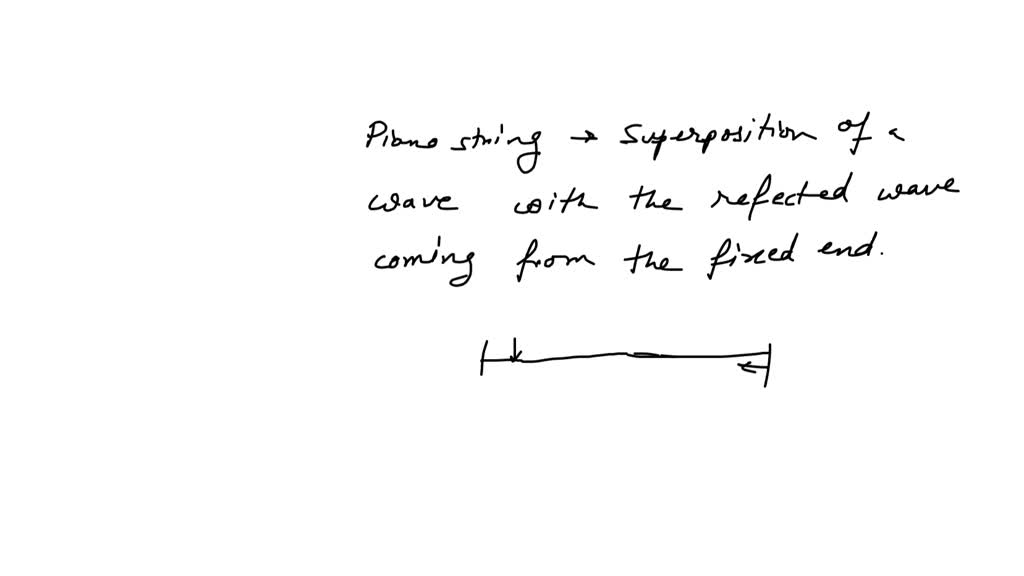 Piano string → Superposition of a
wave with the refected wave
coming from the fixed end.